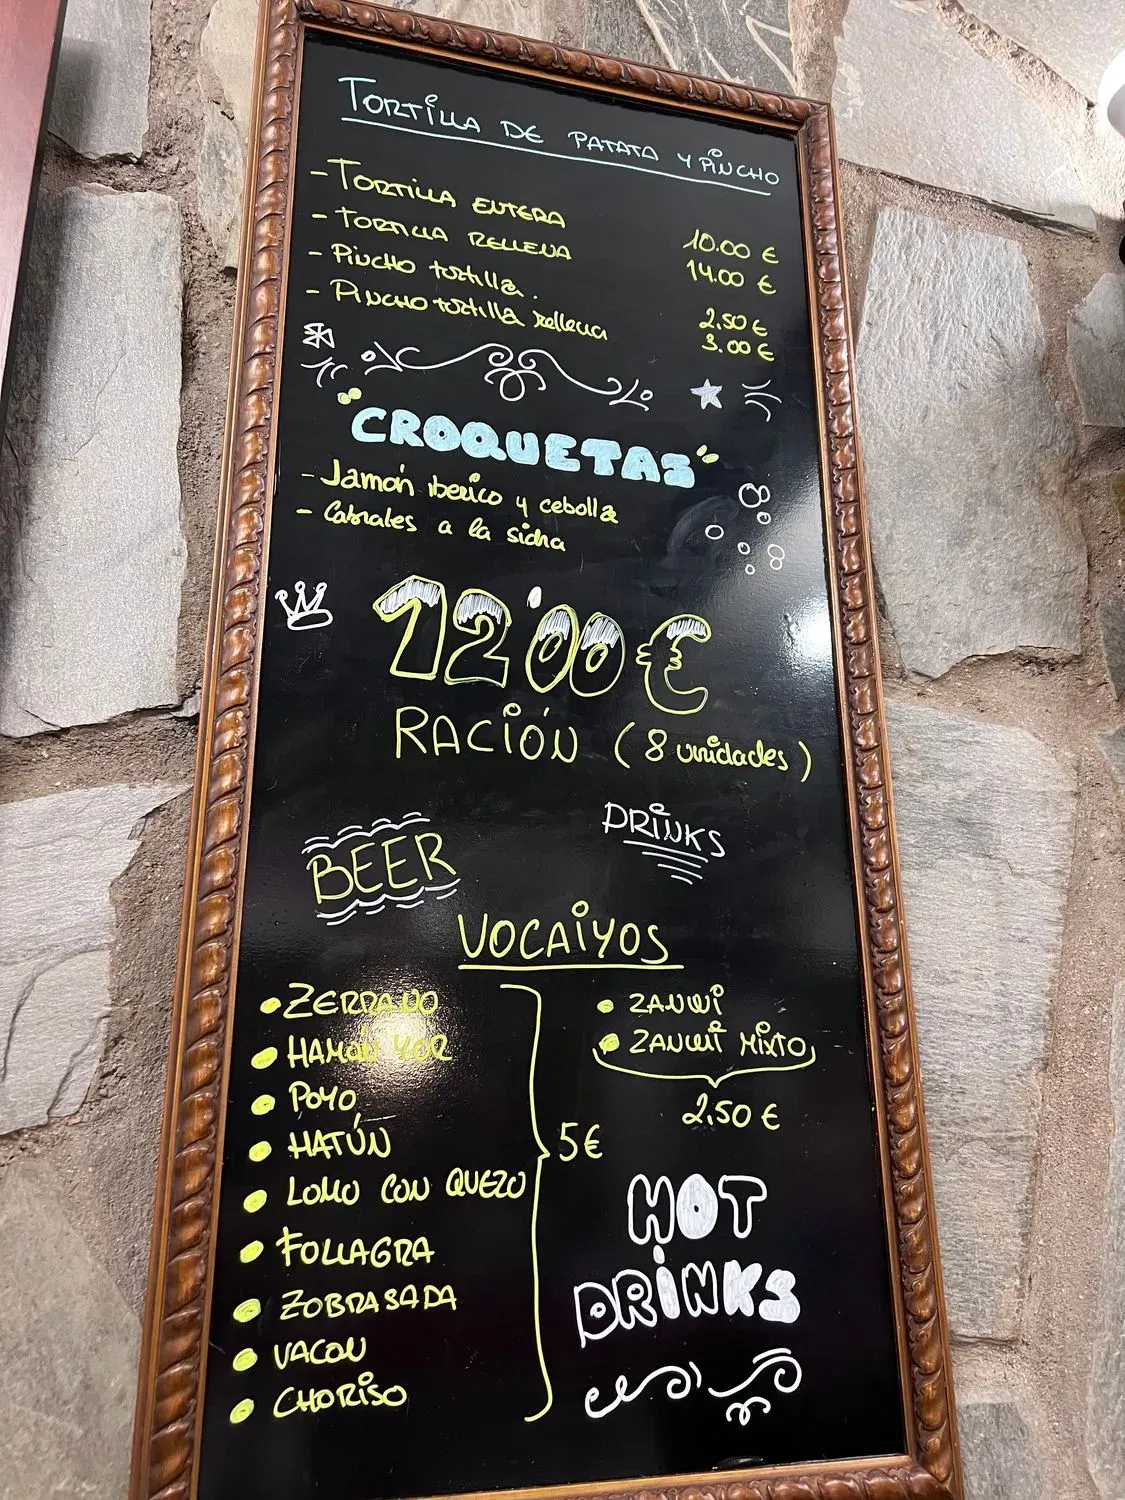 TORTILLA DE PATATA Y PINCHO
- TORTILLA ENTERA 10.00 €
- TORTILLA RELLENA 14.00 €
- PINCHO tortilla. 2.50 €
- PINCHO tortilla rellena 3.00 €
"CROQUETAS"
- Jamón iberico y cebolla
- Cabrales a la sidra
12'00 €
RACIÓN (8 unidades)
BEER
DRINKS
VOCAIYOS
• ZERRANO
• HAMON YOR
• POYO
• HATÚN
• LOMO CON QUEZO
• FOLLAGRA
• ZOBRASADA
• VACON
• CHORISO
5€
• ZANWI
• ZANWI MIXTO
2.50 €
HOT
DRINKS